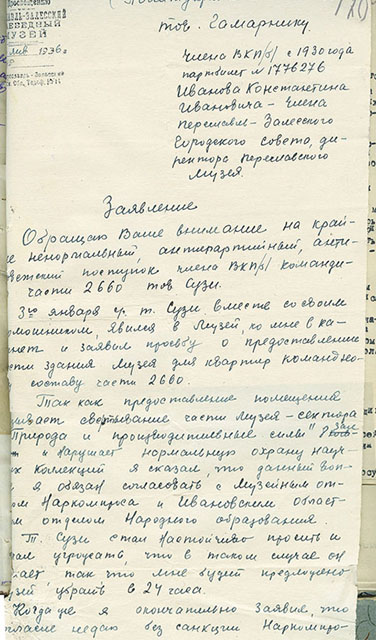 тов. Гамарнику.
120
просвещению
ВЛЬ-ЗАЛЕССКИЙ
ВЕДНЫЙ
УЗЕЙ
янв 1936 г
члена ВКП/б/ с 1930 года
партбилет № 1776276
Иванова Константина
Ивановича – члена
Переславль-Залесского
Городского совета, ди-
ректора Переславского
Музея.
Заявление
Обращаю Ваше внимание на край-
не ненормальный, антипартийный, анти-
ветский поступок члена ВКП/б/ команди-
части 2660 тов Сузи.
3го января ц. т. Сузи вместе со своим
мощником, явился в Музей, ко мне в ка-
нет и заявил просьбу о предоставлении
сти здания Музея для квартир командно-
составу части 2660.
Так как предоставление помещения
ывает свертывание части Музея – сектора
Природа и производительные силы" 7 зал
и нарушает нормальную охрану науч-
х коллекций я сказал, что данный воп-
я обязан согласовать с Музейным от-
ом Наркомпроса и Ивановским област-
м отделом Народного образования.
Т. Сузи стал настойчиво просить и
чал угрожать, что в таком случае он
лает так что мне будет предложено
зей убрать в 24 часа.
Когда же я окончательно заявил, что
гласие не даю без санкции Наркомпро-